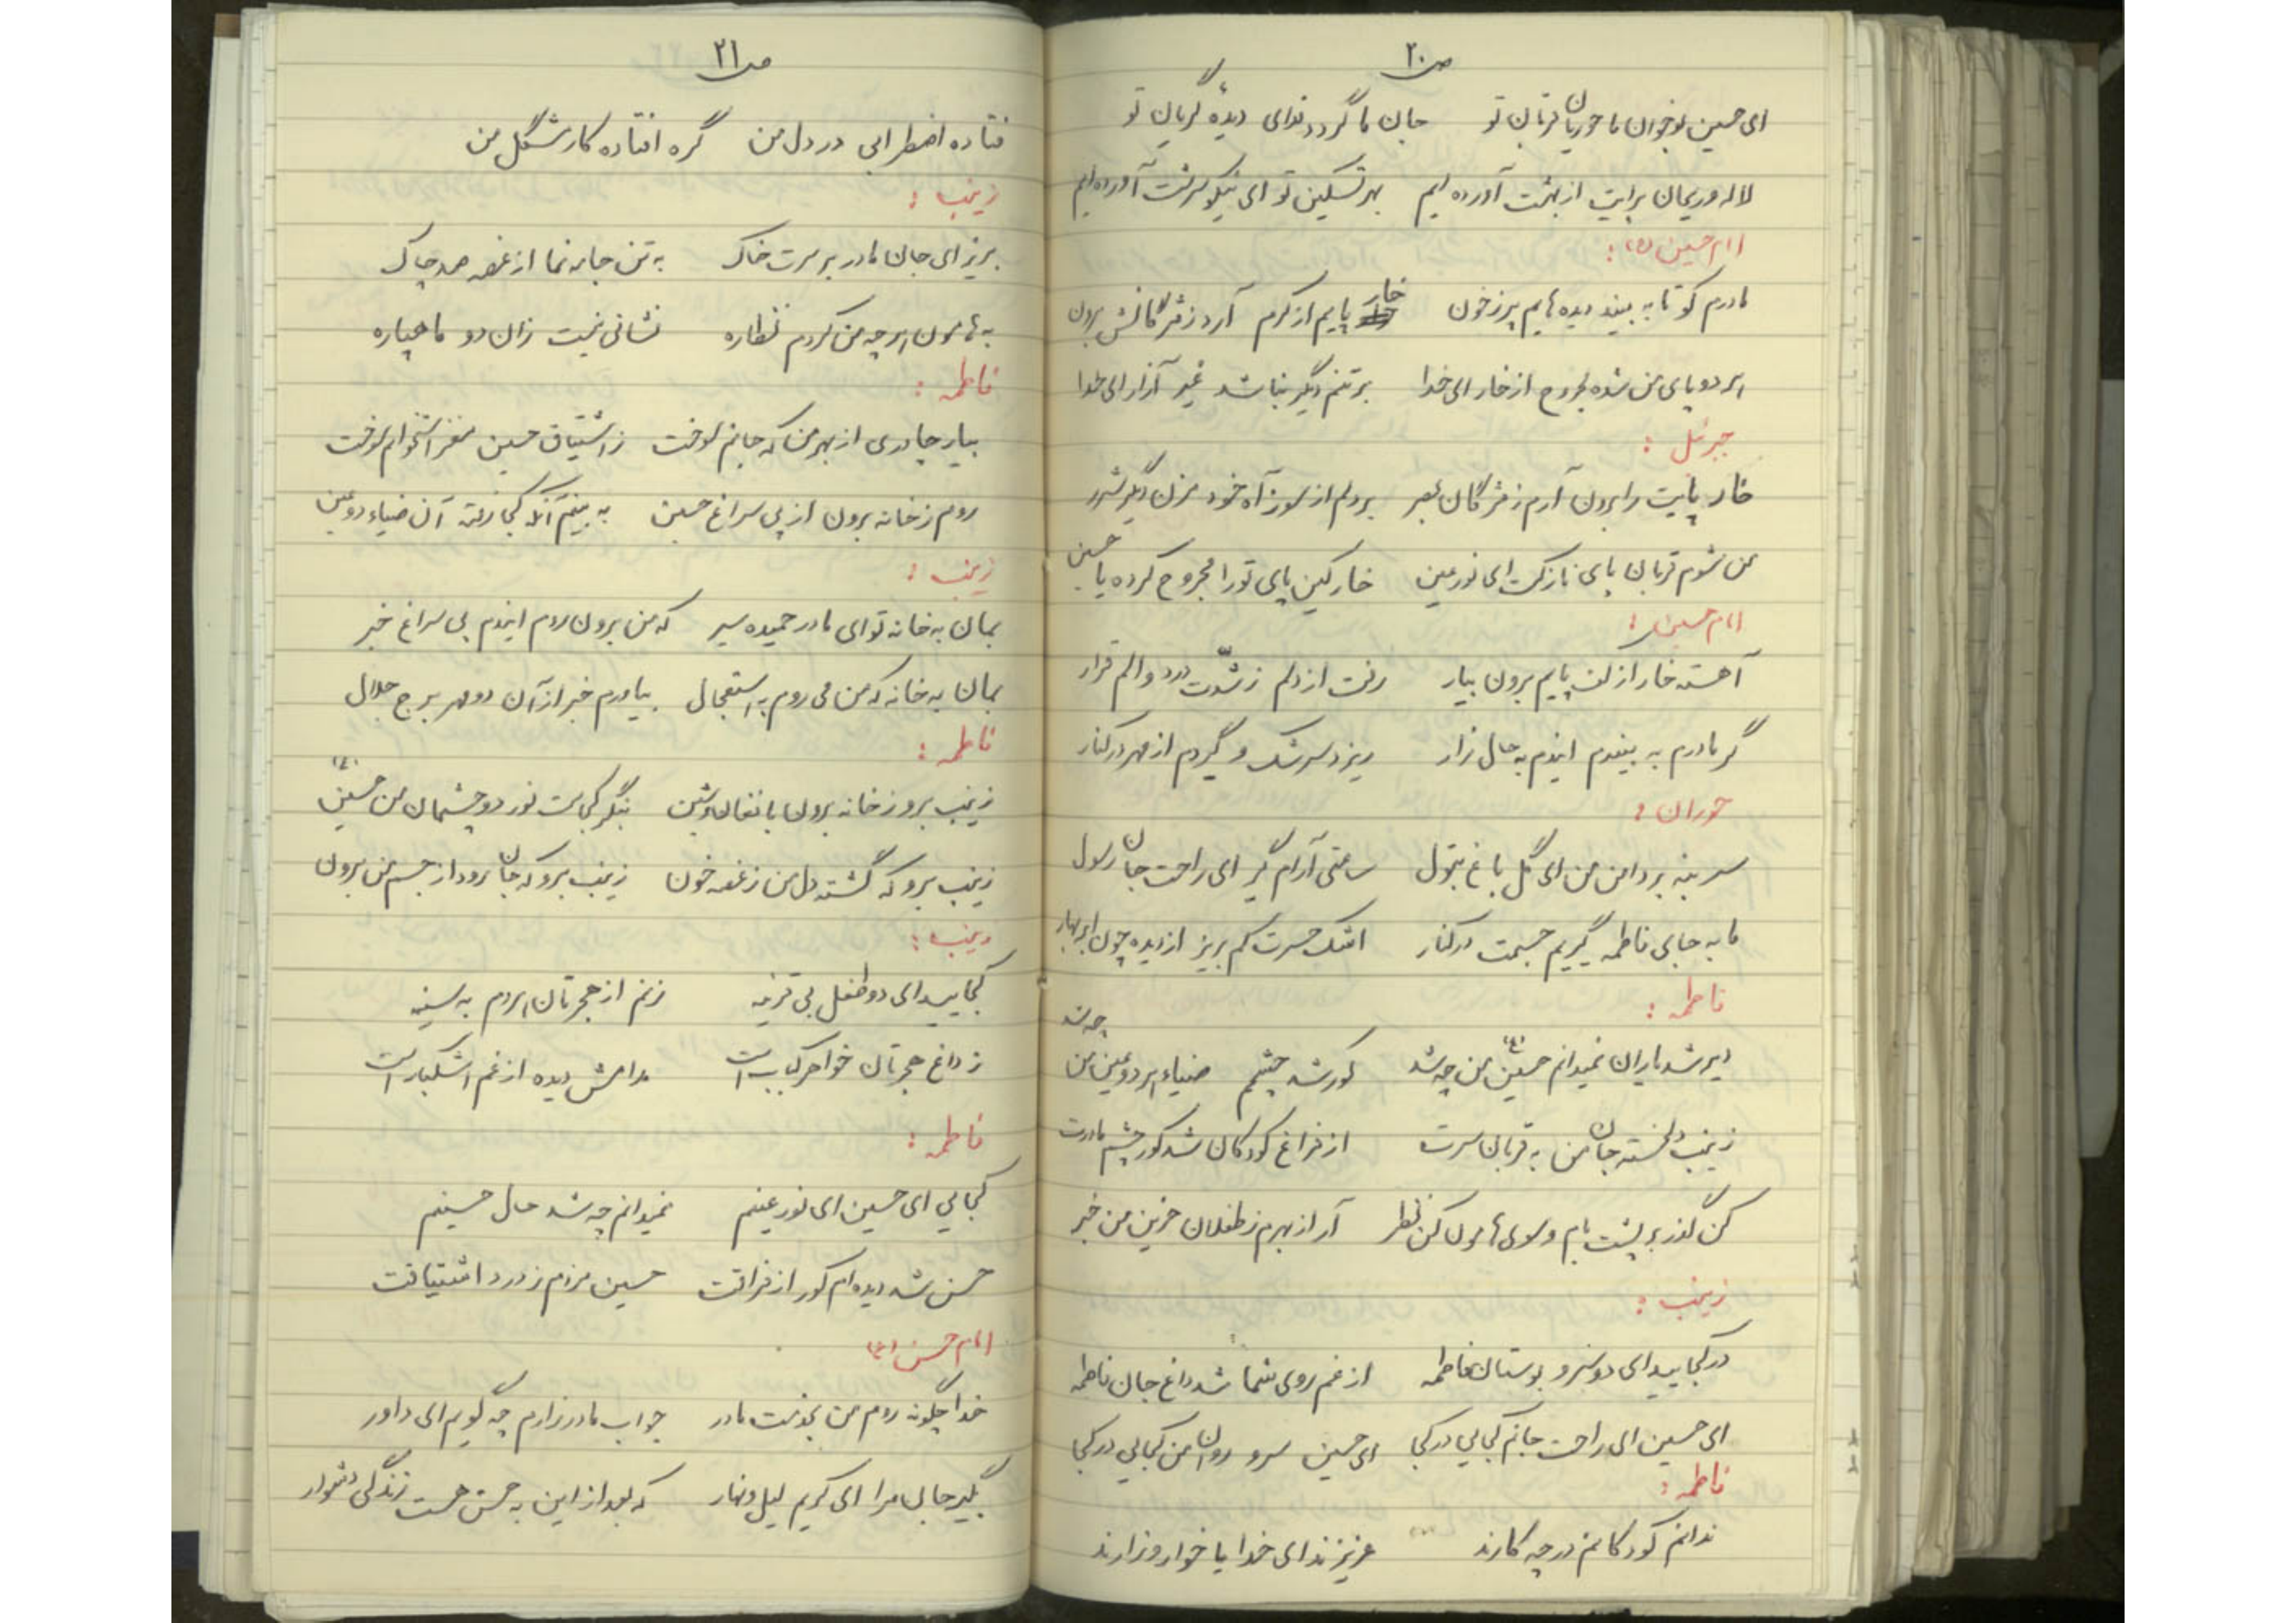 ص ۲۰
ای حسین نوجوان ما حوریان قربان تو جان ما گردد فدای دیده گریان تو
لاله و ریحان برایت از بهشت آورده ایم بهر تسکین تو ای نیکو سرشت آورده ایم
امام حسین (ع):
مادرم کو تا به بیند دیده هایم پرز خون خار پایم از کرم آرد ز مژگانش برون
هر دو پای من شده مجروح از خار ای خدا بر تنم دیگر نباشد غیر آزار ای خدا
جبرئیل:
خار پایت را برون آرم ز مژگان بصر بر دلم از سوز آه خود مزن دیگر شرر
من شوم قربان پای نازکت ای نور عین خار کین پای تو را مجروح کرده یا حسین
امام حسین:
آهسته خار از کف پایم برون بیار رفت از دلم ز شدّت درد و الم قرار
گر مادرم به بیندم ایندم به حال زار ریزد سرشک و گیردم از مهر در کنار
حوران:
سر بنه بر دامن من ای گل باغ بتول ساعتی آرام گیر ای راحت جان رسول
ما به جای فاطمه گیریم جسمت در کنار اشک حسرت کم بریز از دیده چون ابر بهار
فاطمه:
دیر شد یاران نمیدانم حسین (ع) من چه شد کور شد چشمم ضیاء هر دو عین من چه شد
زینب دلخسته جان من به قربان سرت از فراغ کودکان شد کور چشم مادرت
کن گذر بر پشت بام و سوی هامون کن نظر آر از بهرم ز طفلان حزین من خبر
زینب:
در کجایید ای دو سرو بوستان فاطمه از غم روی شما شد داغ جان فاطمه
ای حسین ای راحت جانم کجایی در کجا ای حسین سرو روان من کجایی در کجا
فاطمه:
ندانم کودکانم در چه کارند عزیزند ای خدا یا خوار و زارند
ص ۲۱
فتاده اضطرابی در دل من گره افتاده کار مشگل من
زینب:
بریز ای جان مادر بر سرت خاک به تن جامه نما از غصه صد چاک
به هامون هر چه من کردم نظاره نشانی نیست زان دو ماهپاره
فاطمه:
بیار چادری از بهر من که جانم سوخت ز اشتیاق حسین مغز استخوانم سوخت
روم ز خانه برون از پی سراغ حسین به بینم آنکه کجا رفته آن ضیاء دو عین
زینب:
بمان به خانه تو ای مادر حمیده سیر که من برون روم ایندم پی سراغ خبر
بمان به خانه که من می روم به استعجال بیاورم خبر از آن دو مهر برج جلال
فاطمه:
زینب برو ز خانه برون با فغان و شین بنگر کجاست نور دو چشمان من حسین (ع)
زینب برو که گشته دل من ز غصه خون زینب برو که جان رود از جسم من برون
زینب:
کجایید ای دو طفل بی قرینه زنم از هجرتان هر دم به سینه
ز داغ هجرتان خواهر کباب است مدامش دیده از غم اشکبار است
فاطمه:
کجایی ای حسین ای نور عینم نمیدانم چه شد حال حسینم
حسن شد دیده ام کور از فراقت حسین مردم ز درد اشتیاقت
امام حسن (ع)
خدا چگونه روم من بخدمت مادر جواب مادر زارم چه گویم ای داور
بگیر جان مرا ای کریم لیل و نهار که بعد از این به حسن هست زندگی دشوار